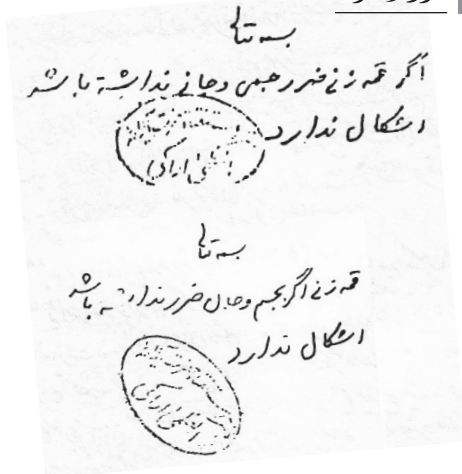 بسمه تعالی
اگر قمه زنی ضرر جسمی و جانی نداشته باشد
اشکال ندارد
العظمی اراکی
بسمه تعالی
قمه زنی اگر بجسم و جان ضرر نداشته باشد
اشکال ندارد
العظمی اراکی